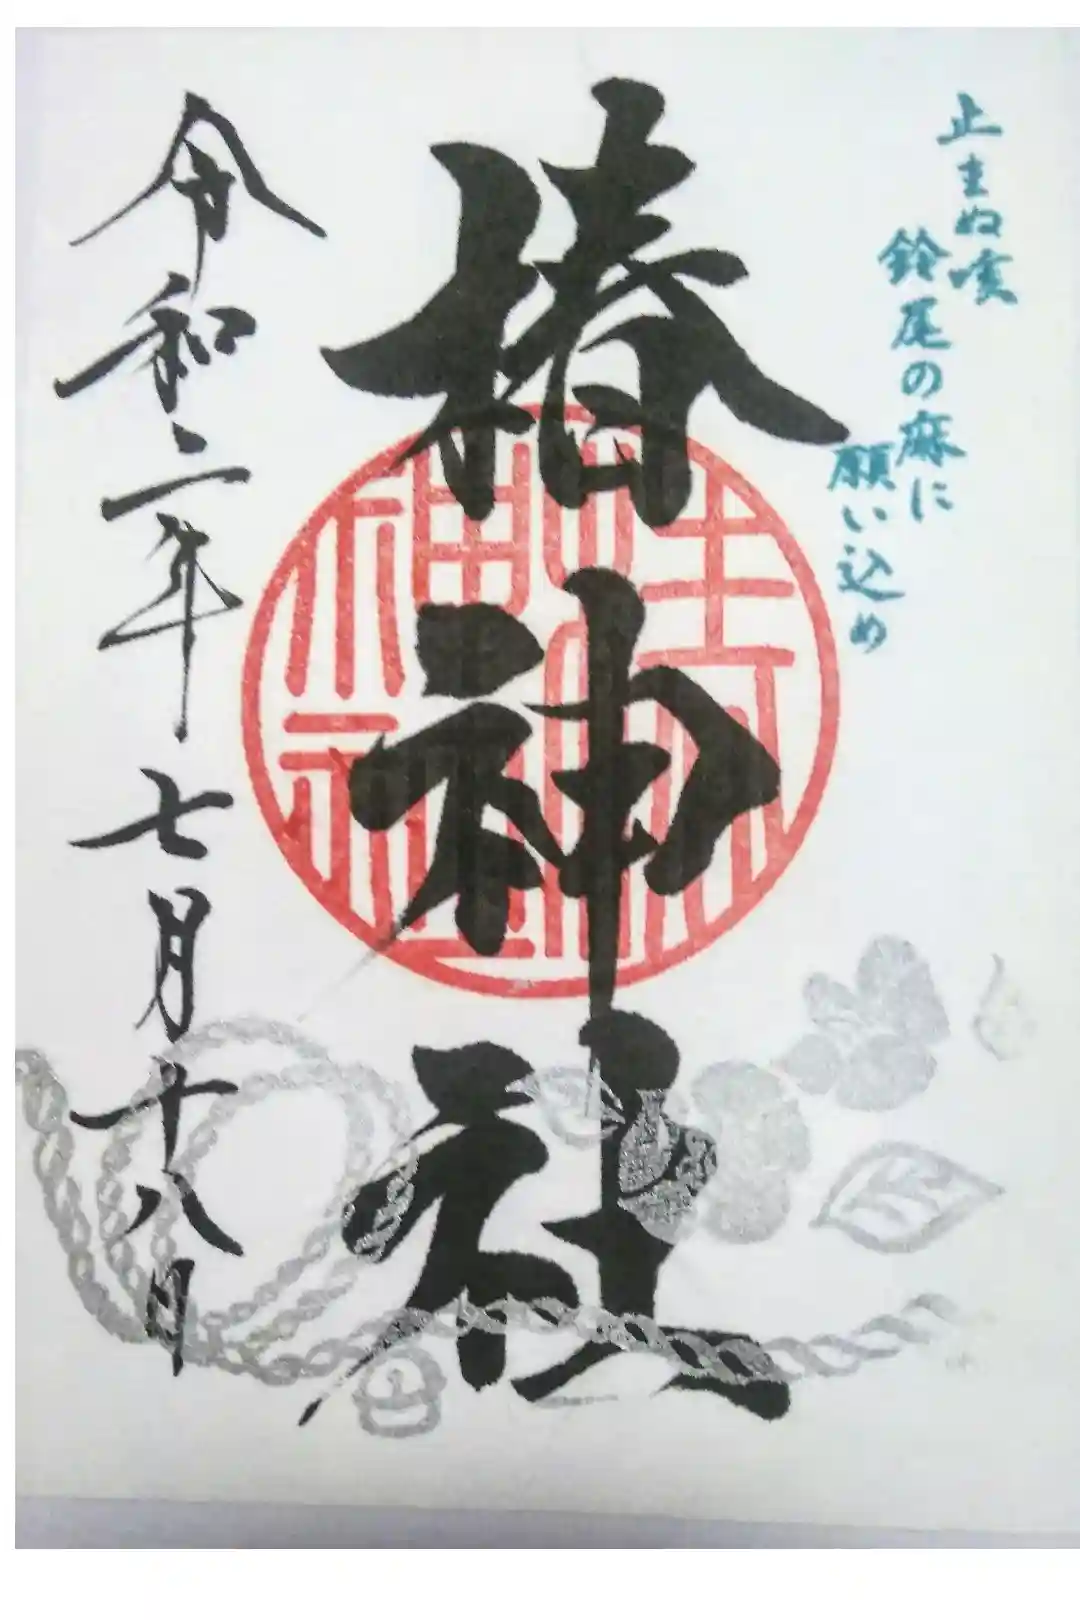 止まぬ咳
鈴尾の麻に
願い込め
椿神社
令和二年七月十八日